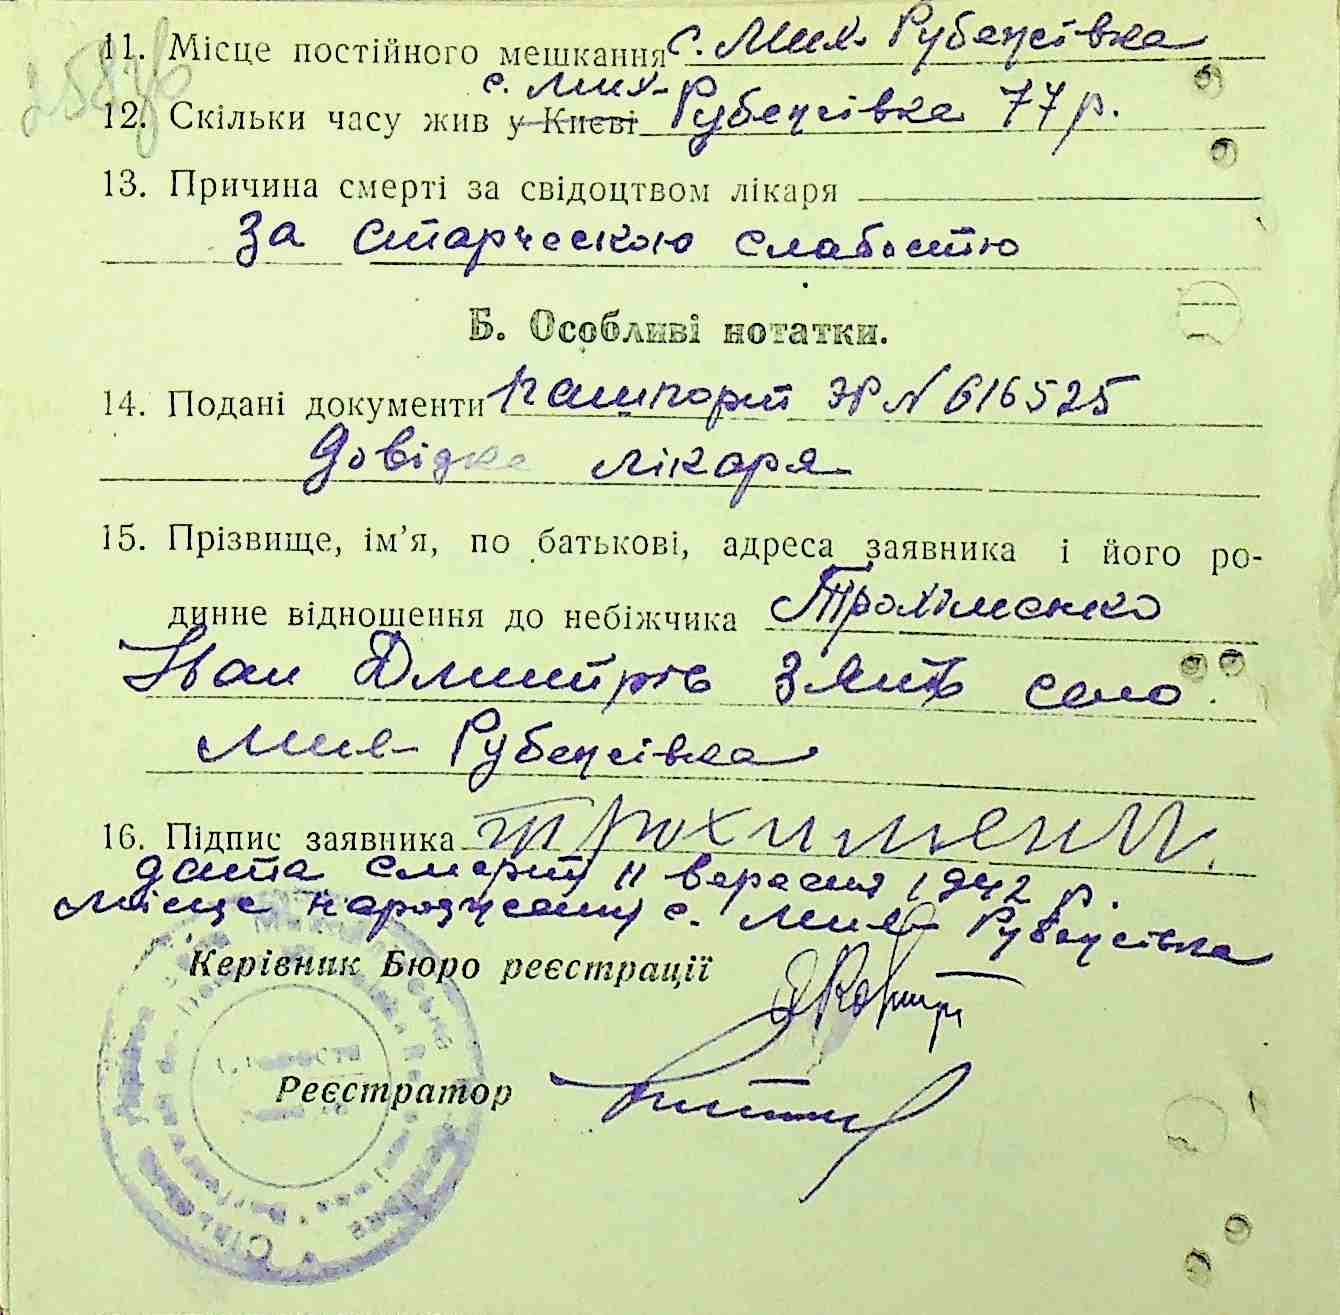 11. Місце постійного мешкання с. Мих. Рубежівка
с. Мих-
12. Скільки часу жив у Києві Рубежівка 77 р.
13. Причина смерті за свідоцтвом лікаря
за старческою слабостю
Б. Особливі нотатки.
14. Подані документи пашпорт ЭР № 616525
Довідка лікаря
15. Прізвище, ім'я, по батькові, адреса заявника і його ро-
динне відношення до небіжчика Трохименко
Іван Дмитрів зять село
Мих- Рубежівка
16. Підпис заявника Трохименк
дата смерти 11 вересня 1942 р.
Місце народження с. Мих- Рубежівка
Керівник Бюро реєстрації
Реєстратор